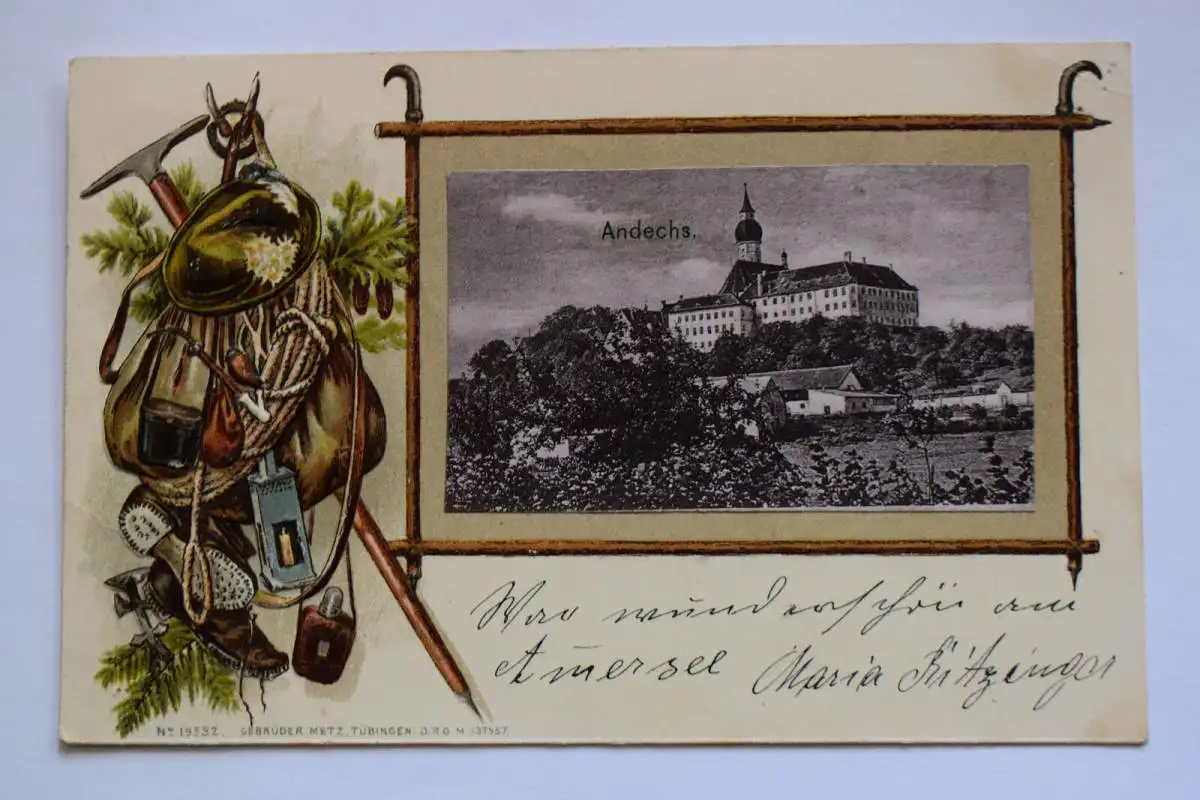 Andechs.
War wunderschön am
Amersel Maria Kitzinger
No. 19532. GEBRÜDER METZ, TÜBINGEN. D.R.G.M. 137557.